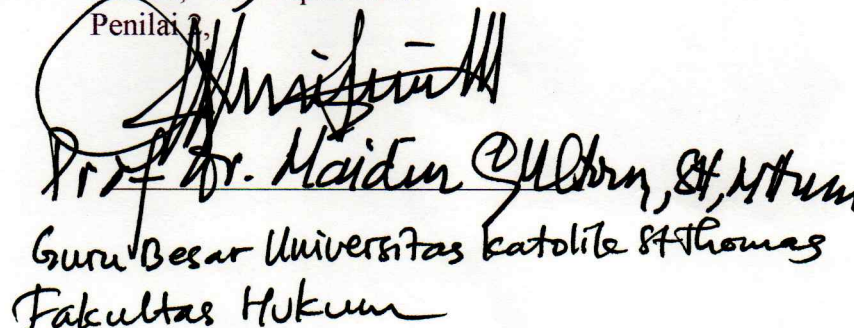 Penilai 2,
Prof Dr. Maidin Gultom, SH, MHum
Guru Besar Universitas Katolik St Thomas
Fakultas Hukum